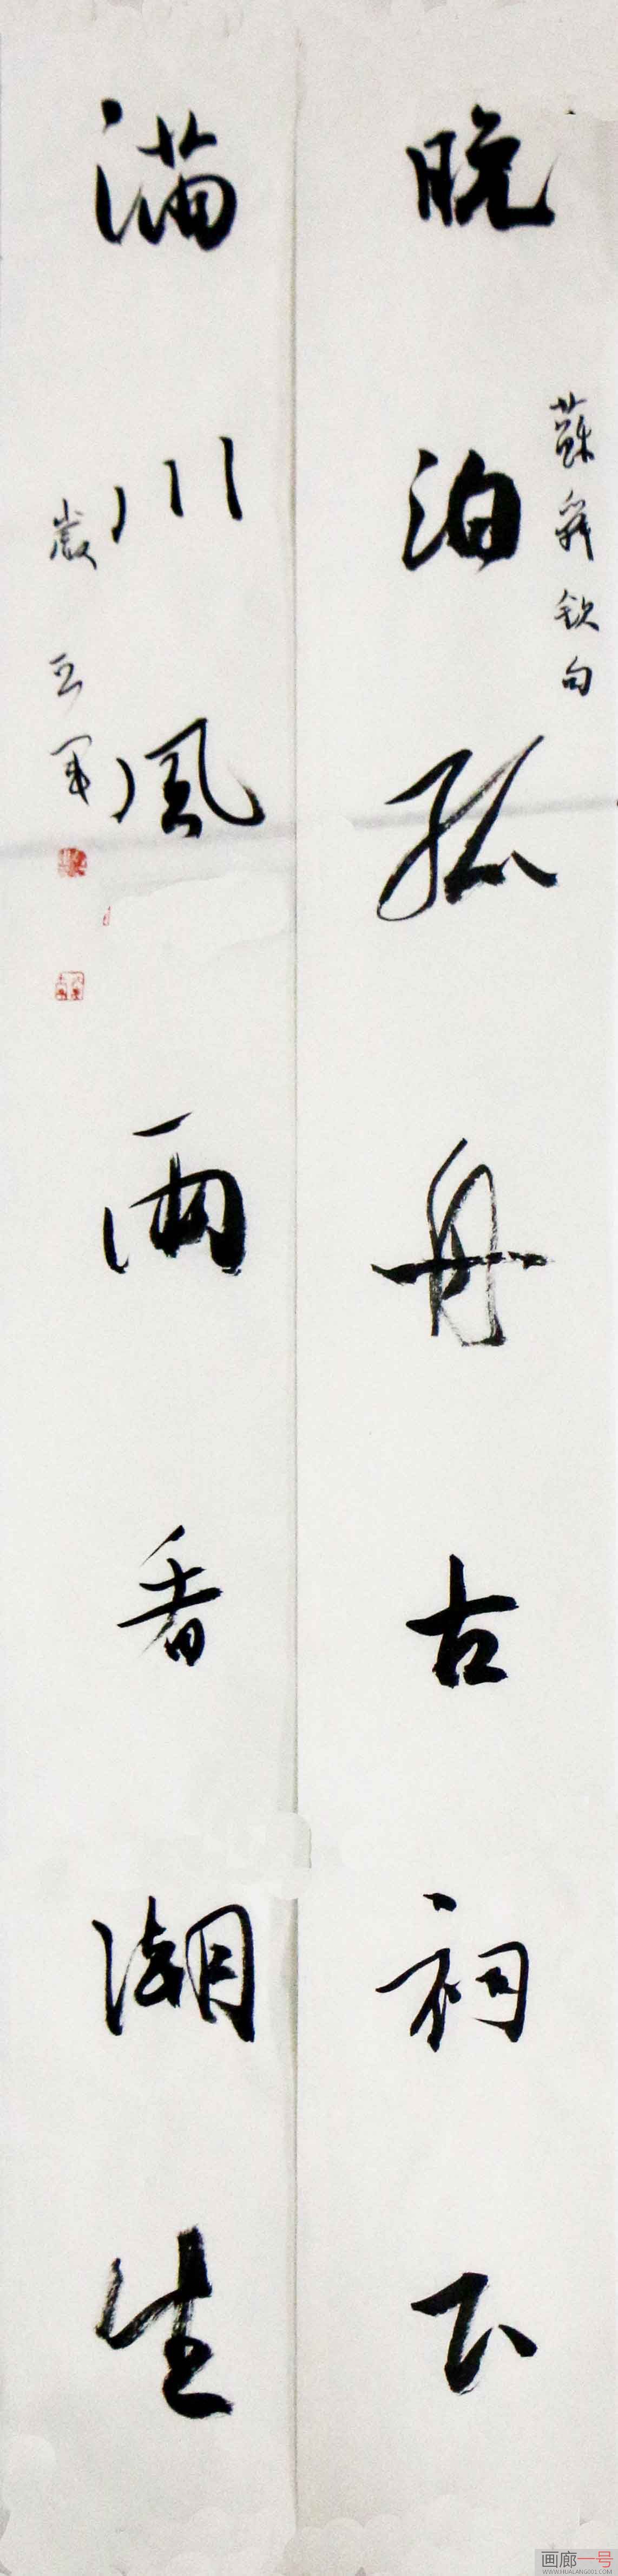 晚泊孤舟古祠下
蘇舜欽句
滿川風雨看潮生
画廊一号
WWW.HUALANG001.COM